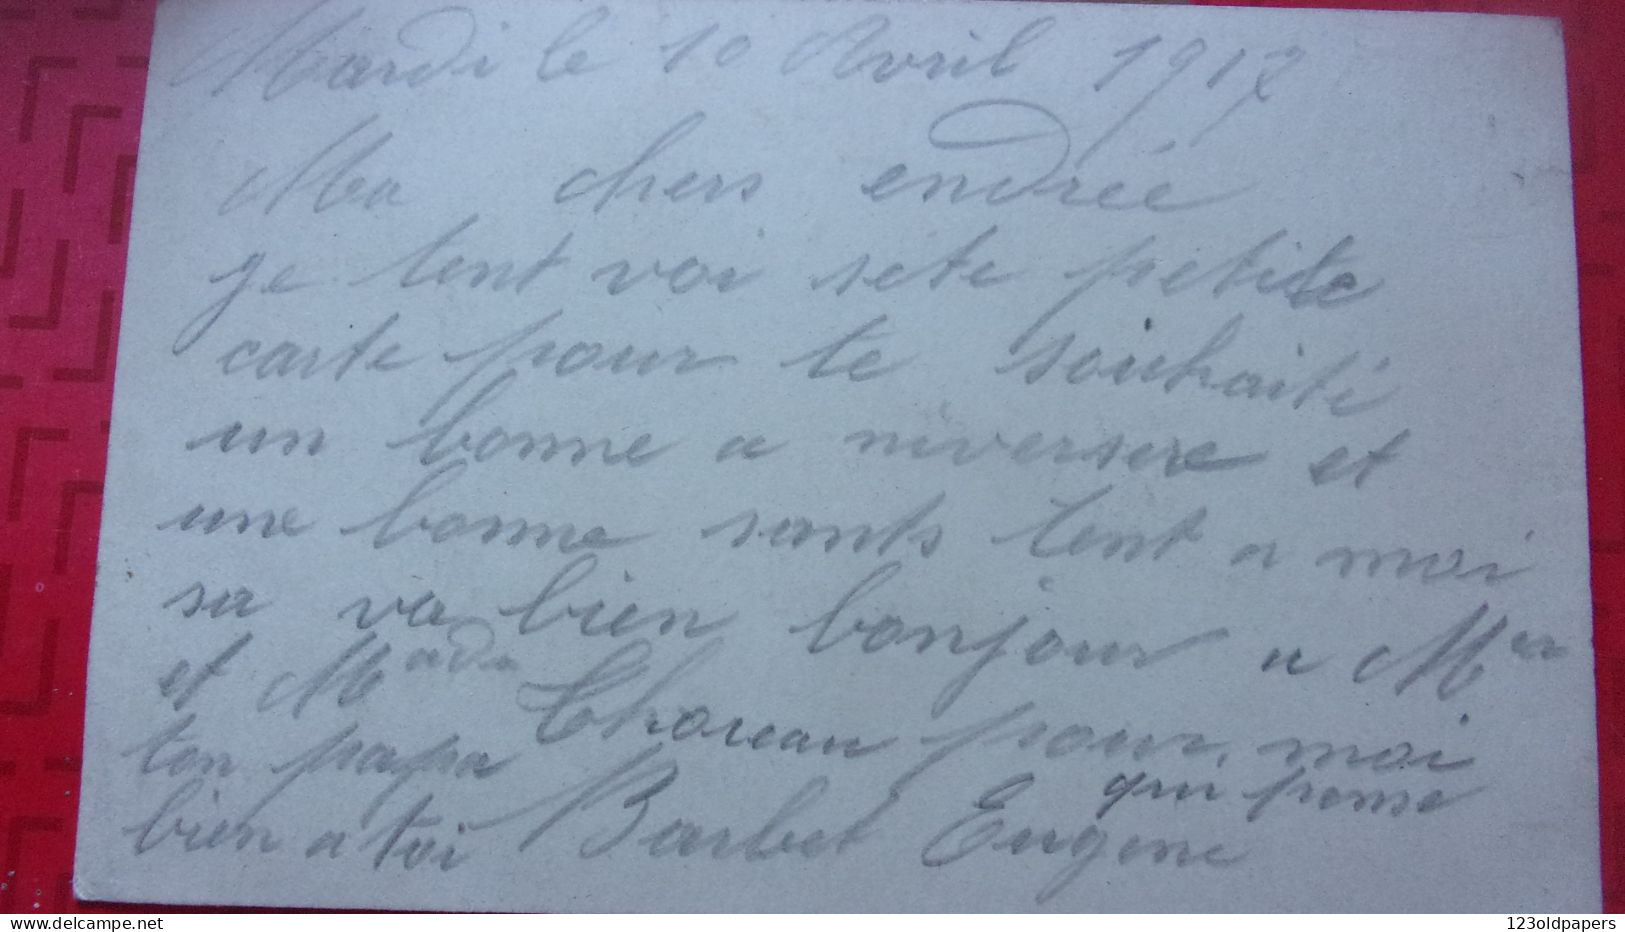 Mardi le 10 Avril 1917
Ma chers endrée
je tent voi sete petite
carte pour te souhaité
un bonne a niversere et
une bonne sants tent a moi
sa va bien bonjour a Mer
et Made Thoreau pour moi
ton papa qui pense
bien a toi Barbet Eugene
123oldpapers